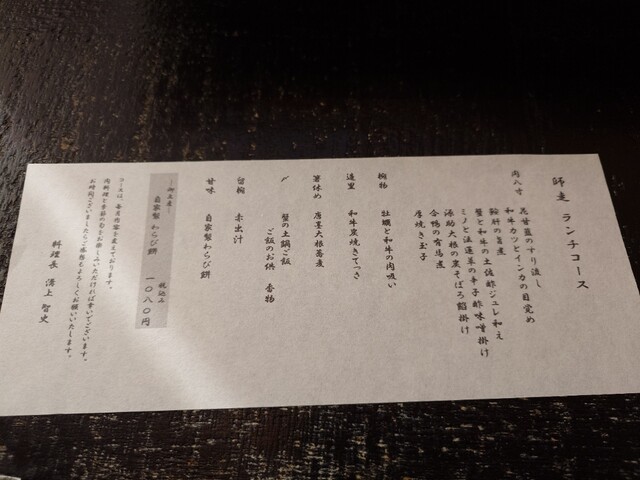 師走 ランチコース
肉八寸 花甘藍のすり流し
和牛カツとインカの目覚め
鮟肝の旨煮
蟹と和牛の土佐酢ジュレ和え
ミノと法蓮草の辛子酢味噌掛け
源助大根の炭そぼろ餡掛け
合鴨の有馬煮
厚焼き玉子
椀物 牡蠣と和牛の肉吸い
造里 和牛炭焼きてっさ
箸休め 唐墨大根蕎麦
〆 蟹の土鍋ご飯
ご飯のお供 香物
留椀 赤出汁
甘味 自家製わらび餅
～御土産～
自家製わらび餅 税込み 一〇八〇円
コースは、毎月内容を変えております。
肉料理と季節の旬をお楽しみいただければ幸いでございます。
お時間ございましたらご感想もよろしくお願いいたします。
料理長 溝上 智史